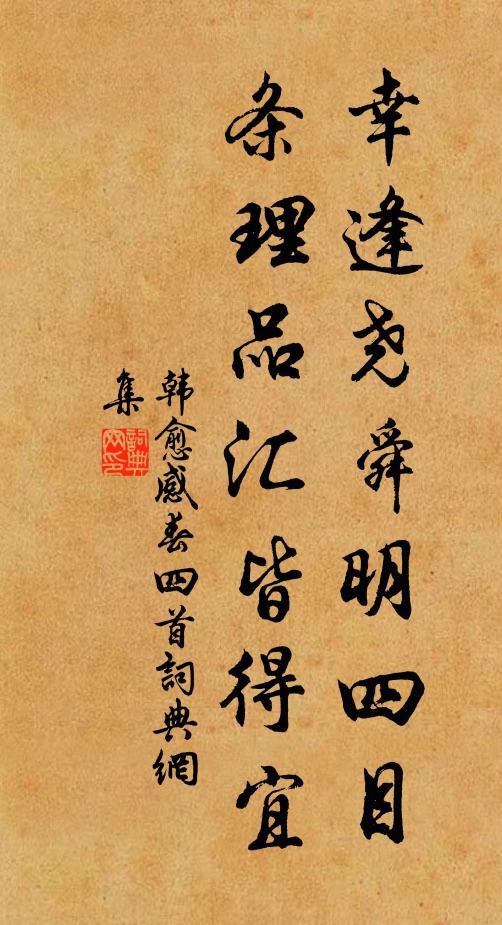 幸逢尧舜明四目
条理品汇皆得宜
韩愈感春四首詞典網
集
詞典網印